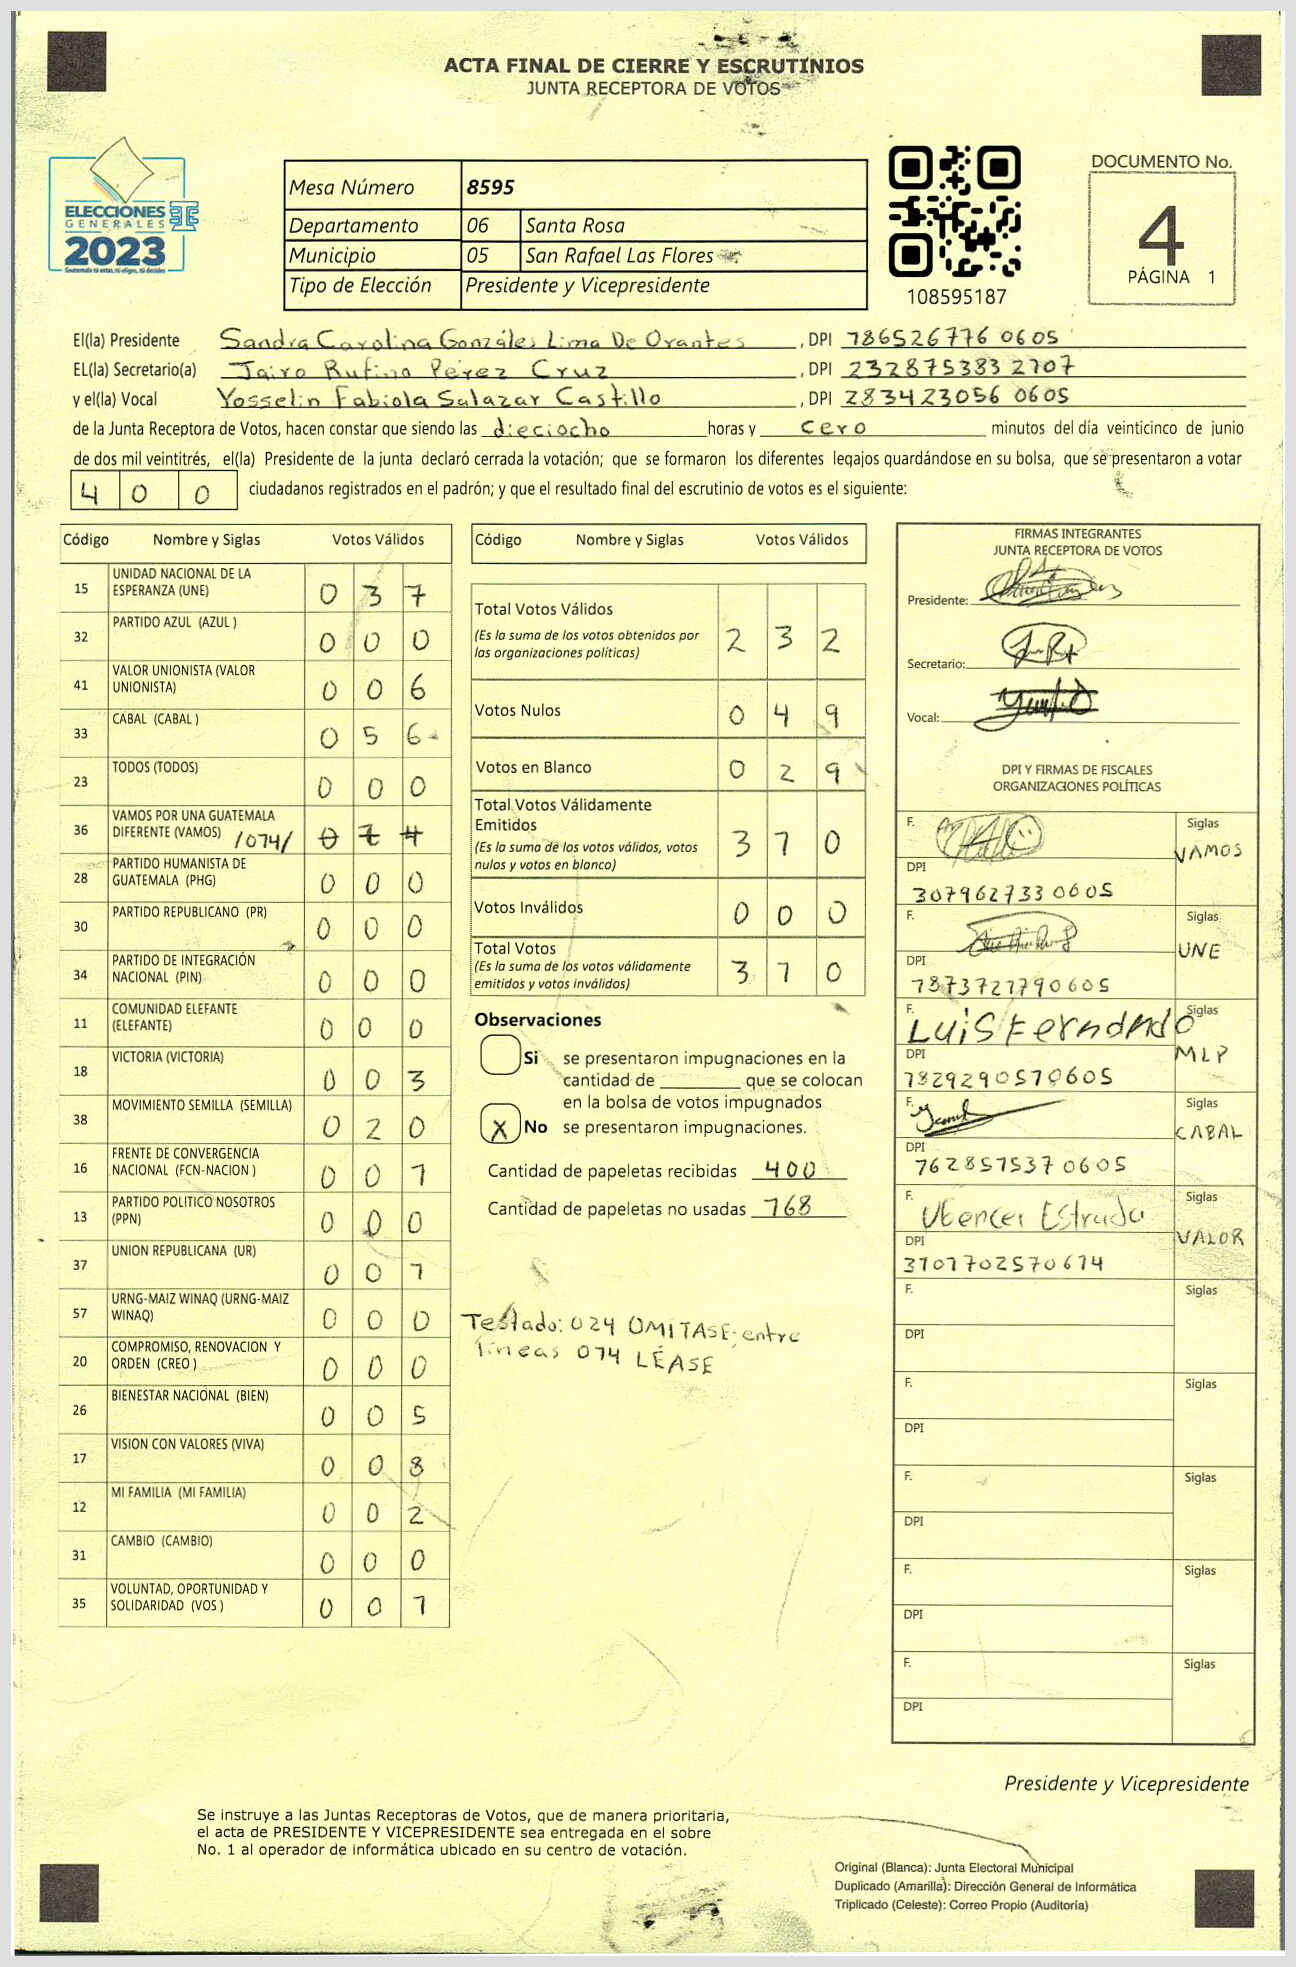 ACTA FINAL DE CIERRE Y ESCRUTINIOS
JUNTA RECEPTORA DE VOTOS
ELECCIONES
GENERALES
2023
Guatemala tú votas, tú eliges, tú decides
Mesa Número 8595
Departamento 06 Santa Rosa
Municipio 05 San Rafael Las Flores
Tipo de Elección Presidente y Vicepresidente
108595187
DOCUMENTO No.
4
PÁGINA 1
El(la) Presidente Sandra Carolina Gonzáles Lima De Orantes, DPI 786526776 0605
EL(la) Secretario(a) Jairo Rufino Pérez Cruz, DPI 232875383 2107
y el(la) Vocal Yosselin Fabiola Salazar Castillo, DPI 283423056 0605
de la Junta Receptora de Votos, hacen constar que siendo las dieciocho horas y cero minutos del día veinticinco de junio
de dos mil veintitrés, el(la) Presidente de la junta declaró cerrada la votación; que se formaron los diferentes legajos guardándose en su bolsa, que se presentaron a votar
400 ciudadanos registrados en el padrón; y que el resultado final del escrutinio de votos es el siguiente:
Código Nombre y Siglas Votos Válidos
15 UNIDAD NACIONAL DE LA ESPERANZA (UNE) 0 3 7
32 PARTIDO AZUL (AZUL ) 0 0 0
41 VALOR UNIONISTA (VALOR UNIONISTA) 0 0 6
33 CABAL (CABAL ) 0 5 6
23 TODOS (TODOS) 0 0 0
36 VAMOS POR UNA GUATEMALA DIFERENTE (VAMOS) /074/
28 PARTIDO HUMANISTA DE GUATEMALA (PHG) 0 0 0
30 PARTIDO REPUBLICANO (PR) 0 0 0
34 PARTIDO DE INTEGRACIÓN NACIONAL (PIN) 0 0 0
11 COMUNIDAD ELEFANTE (ELEFANTE) 0 0 0
18 VICTORIA (VICTORIA) 0 0 3
38 MOVIMIENTO SEMILLA (SEMILLA) 0 2 0
16 FRENTE DE CONVERGENCIA NACIONAL (FCN-NACION ) 0 0 7
13 PARTIDO POLITICO NOSOTROS (PPN) 0 0 0
37 UNION REPUBLICANA (UR) 0 0 7
57 URNG-MAIZ WINAQ (URNG-MAIZ WINAQ) 0 0 0
20 COMPROMISO, RENOVACION Y ORDEN (CREO ) 0 0 0
26 BIENESTAR NACIONAL (BIEN) 0 0 5
17 VISION CON VALORES (VIVA) 0 0 8
12 MI FAMILIA (MI FAMILIA) 0 0 2
31 CAMBIO (CAMBIO) 0 0 0
35 VOLUNTAD, OPORTUNIDAD Y SOLIDARIDAD (VOS ) 0 0 7
Código Nombre y Siglas Votos Válidos
Total Votos Válidos 2 3 2
(Es la suma de los votos obtenidos por
las organizaciones políticas)
Votos Nulos 0 4 9
Votos en Blanco 0 2 9
Total Votos Válidamente
Emitidos 3 7 0
(Es la suma de los votos válidos, votos
nulos y votos en blanco)
Votos Inválidos 0 0 0
Total Votos 3 7 0
(Es la suma de los votos válidamente
emitidos y votos inválidos)
Observaciones
Si se presentaron impugnaciones en la
cantidad de ________ que se colocan
en la bolsa de votos impugnados
X No se presentaron impugnaciones.
Cantidad de papeletas recibidas 400
Cantidad de papeletas no usadas 168
Testado: 024 OMITASE; entre
lineas 074 LÉASE
FIRMAS INTEGRANTES
JUNTA RECEPTORA DE VOTOS
Presidente:
Secretario:
Vocal:
DPI Y FIRMAS DE FISCALES
ORGANIZACIONES POLÍTICAS
F. Siglas VAMOS
DPI 307962733 0605
F. Siglas UNE
DPI 7873727790605
F. Luis Fernando Siglas MLP
DPI 7829290570605
F. Siglas CABAL
DPI 762857537 0605
F. Estrada Siglas VALOR
DPI 3707702570614
F. Siglas
DPI
F. Siglas
DPI
F. Siglas
DPI
F. Siglas
DPI
F. Siglas
DPI
Presidente y Vicepresidente
Se instruye a las Juntas Receptoras de Votos, que de manera prioritaria,
el acta de PRESIDENTE Y VICEPRESIDENTE sea entregada en el sobre
No. 1 al operador de informática ubicado en su centro de votación.
Original (Blanca): Junta Electoral Municipal
Duplicado (Amarilla): Dirección General de Informática
Triplicado (Celeste): Correo Propio (Auditoría)